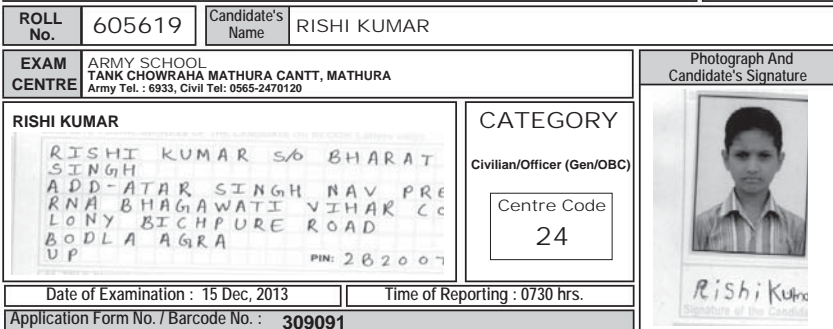 ROLL No.
605619
Candidate's Name
RISHI KUMAR
EXAM CENTRE
ARMY SCHOOL
TANK CHOWRAHA MATHURA CANTT, MATHURA
Army Tel. : 6933, Civil Tel: 0565-2470120
Photograph And
Candidate's Signature
RISHI KUMAR
RISHI KUMAR S/o BHARAT
SINGH
ADD-ATAR SINGH NAV PRE
RNA BHAGAWATI VIHAR CO
LONY BICHPURE ROAD
BODLA AGRA
UP
PIN: 282007
CATEGORY
Civilian/Officer (Gen/OBC)
Centre Code
24
Rishi Kuma
Signature of the Candida
Date of Examination : 15 Dec, 2013
Time of Reporting : 0730 hrs.
Application Form No. / Barcode No. : 309091